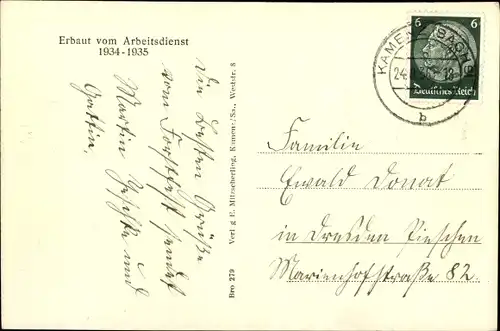 Erbaut vom Arbeitsdienst
1934-1935
Die besten Grüße
vom Forstfest sendet
Martin
und
Gattin.
Verl. g. E. Mitzscherling, Kamenz/Sa., Weststr. 8
Bro 279
KAMENZ (SACHS)
24
18
b
6 6
Deutsches Reich
Familie
Ewald Donat
in Dresden Pieschen
Marienhofstraße 82.